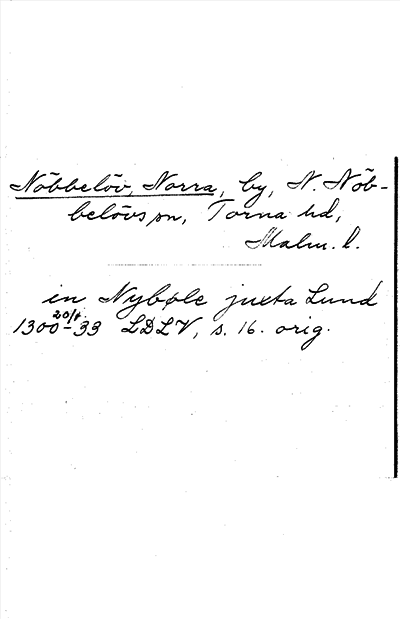 Nöbbelöv, Norra, by, N. Nöb-
belövs sn, Torna hd,
Malm. l.
in Nybøle juxta Lund
1300 20/1 - 33 LDLV, s. 16. orig.